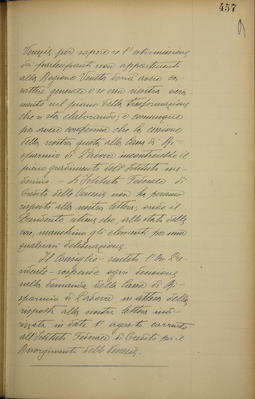 457
Venezia, per sapere se l'ammissione
di partecipanti non appartenenti
alla Regione Veneta dovrà avere ca-
rattere generale e se essa rientra vera-
mente nel piano della trasformazione
che si sta elaborando, e comunque
per avere conferma che la cessione
della nostra quota alla Cassa di Ri-
sparmio di Padova incontrerebbe il
pieno gradimento dell'Istituto me-
desimo - L'Istituto Federale di
Credito delle Venezie non ha però
risposto alla nostra lettera, onde il
Presidente ritiene che, allo stato delle
cose, manchino gli elementi per una
qualsiasi deliberazione.
Il Consiglio - udito l'On. Pre-
sidente - sospende ogni decisione
sulla domanda della Cassa di Ri-
sparmio di Padova in attesa della
risposta alla nostra lettera indi-
rizzata in data 1° agosto corrente
all'Istituto Federale di Credito per il
Risorgimento delle Venezie.